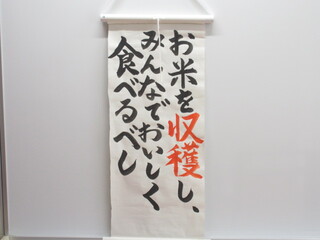 お米を収穫し、
みんなでおいしく
食べるべし